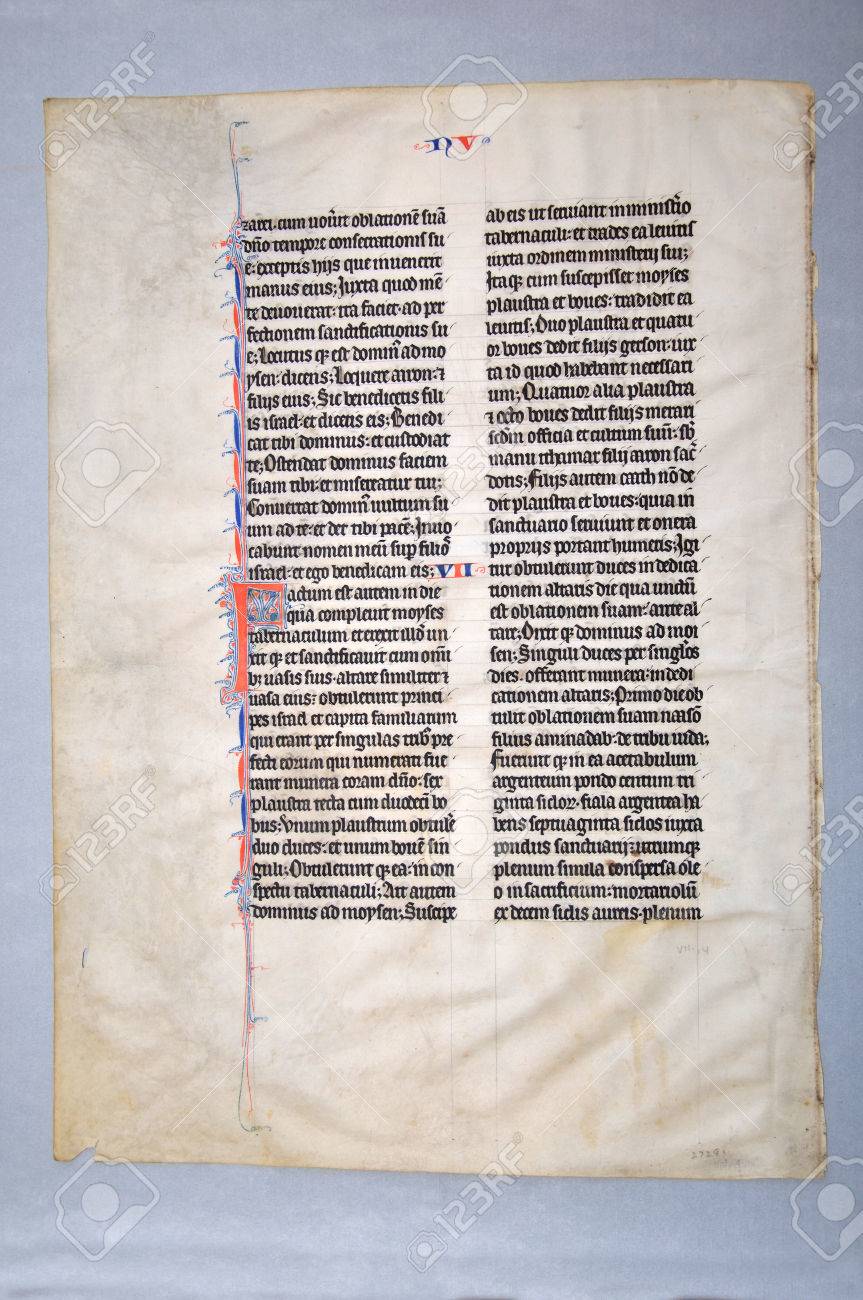 NU
zarei. cum nouĩt oblationẽ suã
dño tempore consecrationis su
e. exceptis hijs que inuenerit
manus eius; Iuxta quod mẽ
te deuouerat: ita faciet ad per
fectionem sanctificationis su
e; Locutus q̃ est dominꝰ ad mo
ysen dicens; Loquere aaron ⁊
filijs eius; Sic benedicetis fili
is israel et dicetis eis; Benedi
cat tibi dominus: et custodiat
te; Ostendat dominus faciem
suam tibi et misereatur tui;
Conuertat dominꝰ uultum su
um ad te: et det tibi pacẽ; Inuo
cabunt nomen meũ sup̃ filiọs
israel: et ego benedicam eis; VII
Factum est autem in die
qua compleuit moyses
tabernaculum et erexit illđ un
xit q̃ et sanctificauit cum om̃i
bꝫ uasis suis. altare similiter ⁊
uasa eius: obtulerunt princi
pes israel et capita familiarum
qui erant per singulas tribꝰ pre
fecti eorum qui numerati fue
rant munera coram dño: sex
plaustra tecta cum duodecĩ bo
bus; Vnum plaustrum obtulẽ
duo duces: et unum bouẽ sin
guli; Obtulerunt q̃ ea in con
spectu tabernaculi; Ait autem
dominus ad moysen; Suscipe
ab eis ut seruiant in ministĩo
tabernaculi: et trades ea leuitis
iuxta ordinem ministerij sui;
Ita q̃ cum suscepisset moyses
plaustra et boues: tradidit ea
leuitis; Duo plaustra et quatu
or boues dedit filijs gerson: iux
ta id quod habebant necessari
um; Quatuor alia plaustra
⁊ octo boues dedit filijs merari
scđm officia et cultum suũ: sb̃
manu ithamar filij aaron sac̃
dotis; Filijs autem caath nõ de
dit plaustra et boues: quia in
sanctuario seruiunt et onera
proprijs portant humeris; Igi
tur obtulerunt duces in dedica
tionem altaris die qua unctũ
est oblationem suam: ante al
tare; Dixit q̃ dominus ad moi
sen; Singuli duces per singłos
dies. offerant munera: in dedi
cationem altaris; Primo die ob
tulit oblationem suam naasõ
filius aminadab: de tribu iuda;
Fuerunt q̃ in ea acetabulum
argenteum pondo centum tri
ginta sicloꝝ. fiala argentea ha
bens septuaginta siclos iuxta
pondus sanctuarij: utrumq̃
plenum simila conspersa ole
o in sacrificium: mortariolũ
ex decem siclis aureis. plenum
2729
123RF
123RF
123RF
123RF
123RF
123RF
123RF